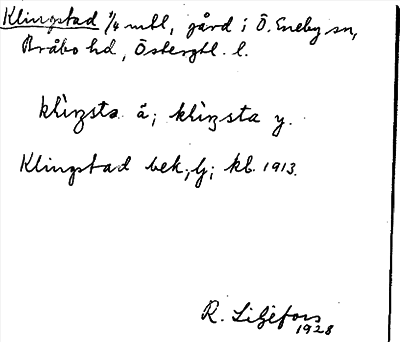 Klingstad 1/4 mtl, gård i Ö. Eneby sn,
Bråbo hd, Östergtl. l.
klìŋsta ä; klìŋsta y.
Klingstad bek., lj; kb. 1913.
R. Liljefors
1928